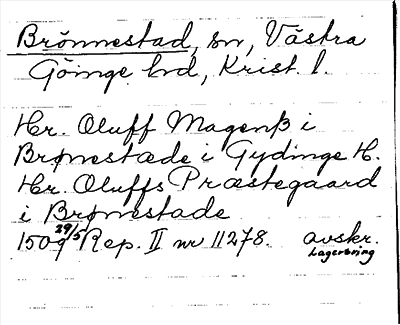 Brönnestad, sn, Västra
Göinge hd, Krist. l.
Hr. Oluff Magenß i
Brønestæde i Gydinge H.
Hr. Oluffs Præstegaard
i Brønestade
1509 29/5 Rep. II nr 11278. avskr.
Lagerbring